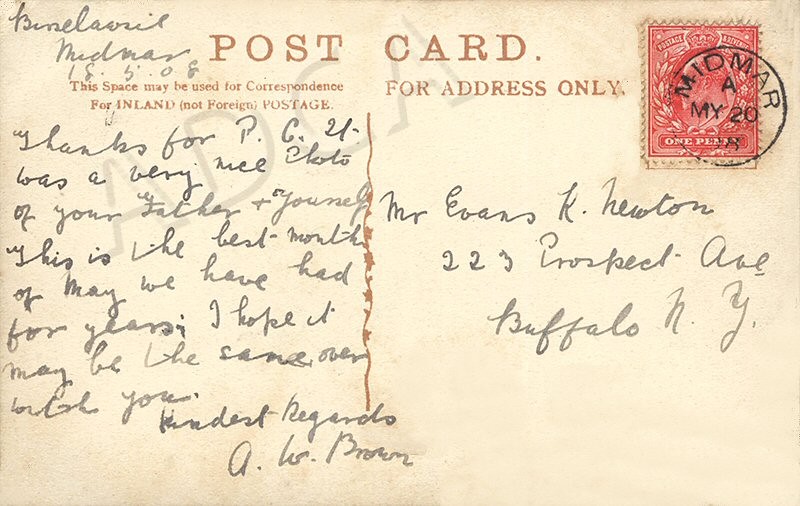 Midmar
18.5.08
POST CARD.
This Space may be used for Correspondence
For INLAND (not Foreign) POSTAGE.
FOR ADDRESS ONLY.
Thanks for P. C. It
was a very nice Photo
of your Father + Yourself
This is the best month
of May we have had
for years; I hope it
may be the same over
with you.
Kindest Regards
A. W. Brown
Mr Evans K. Newton
223 Prospect Ave
Buffalo N. Y.
POSTAGE
ONE PENNY
MIDMAR
A
MY 20
ADCA